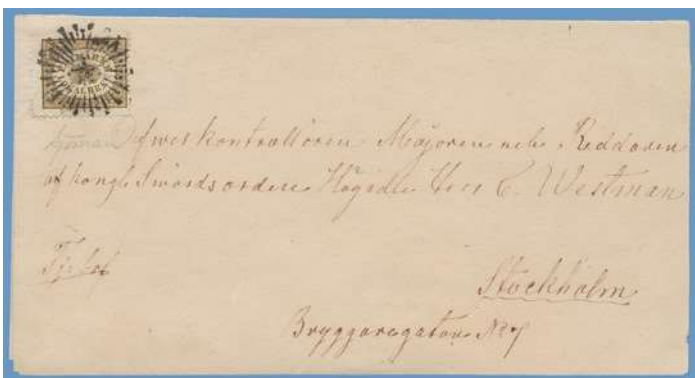 Öfverkontrollören Majoren och Riddaren
af Kongl Swärdsorden Högädle Herr C. Westman
Stockholm
Bryggaregatan No 7